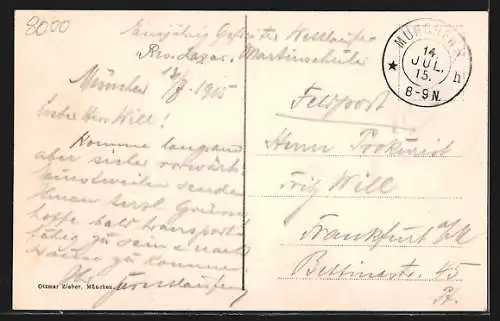 8000
Einjährig Gefreiter
Res. Lazar. Martinschule
München 13/7 1915
Lieber Herr Will!
Komme langsam
aber sicher vorwärts
einstweilen sende
Ihnen herzl. Grüsse
hoffe bald transport
fähig zu sein u. nach
Hause zu kommen.
Ihr
Ottmar Zieher, München.
MÜNCHEN
14.
JUL.
15.
8-9 N.
Feldpost
Herrn Prokurist
Fritz Will
Frankfurt a/M
Bettinastr. 45